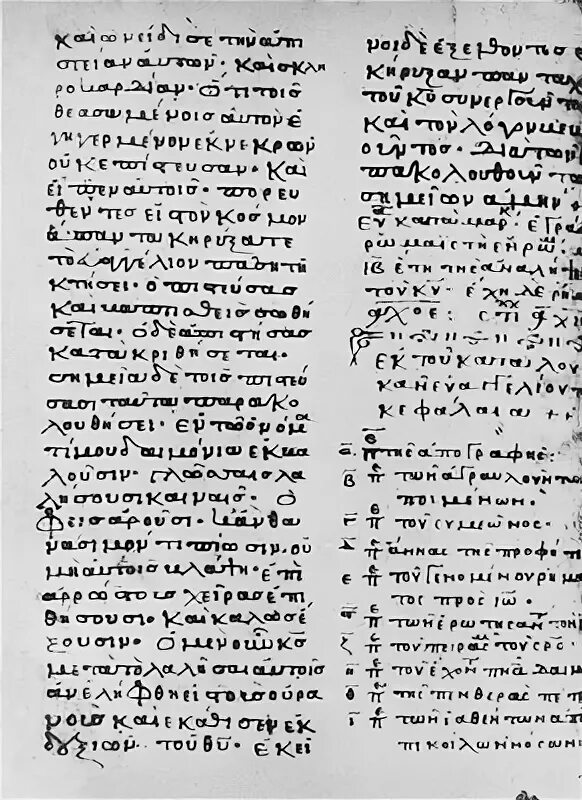 καὶ ὠνείδισε τὴν ἀπι
στείαν αὐτῶν· καὶ σκλη
ροκαρδίαν· ὅτι τοῖς
θεασαμένοις αὐτὸν ἐ
γηγερμένον ἐκ νεκρῶν
οὐκ ἐπίστευσαν· καὶ
εἶπεν αὐτοῖς· πορευ
θέντες εἰς τὸν κόσμον
ἅπαντα κηρύξατε
τὸ εὐαγγέλιον πάση τῆ
κτήσει· ὁ πιστεύσας
καὶ βαπτισθεὶς σωθή
σεται· ὁ δὲ ἀπιστήσας
κατακριθήσεται·
σημεῖα δὲ τοῖς πιστεύ
σασι ταῦτα παρακο
λουθήσει· ἐν τῶ ὀνόμα
τί μου δαιμόνια ἐκβα
λοῦσιν· γλώσσαις λα
λήσουσι καιναῖς· ὄ
φεις ἀροῦσι· κἂν θα
νάσιμόν τι πίωσιν· οὐ
μὴ αὐτοὺς βλάψη· ἐπὶ
ἀρρώστους χεῖρας ἐπι
θήσουσι· καὶ καλῶς ἕ
ξουσιν· ὁ μὲν οὖν κς
μετὰ τὸ λαλῆσαι αὐτοῖς
ἀνελήφθη εἰς τοὺς οὐρα
νοὺς καὶ ἐκάθισεν ἐκ
δεξιῶν τοῦ θυ· ἐκεῖ
νοι δὲ ἐξελθόντες ἐ
κήρυξαν πανταχ
τοῦ κυ συνεργοῦντ
καὶ τὸν λόγον
οῦντος· διὰ τῶν
πακολουθούντ
σημείων ἀμήν
εὐ κατὰ μαρκ ἐγρα
ρωμαιστὶ ἐν ρώμ
ιβ ἔτη τῆς ἀναλή
τοῦ κυ· ἔχη δὲ ρή
αχοε· στι
ἐκ τοῦ κατὰ λου
καν εὐαγγελίου τ
κεφάλαια ++
α· π τῆς ἀπογραφῆς:
β π τῶν ἀγραυλούντ
ποιμένων:
γ π τοῦ συμεῶνος·
δ π ἄννας τῆς προφήτι
ε π τοῦ γενομένου ρήμα
τος πρὸς ἰω·
ϛ π τῶν ἐρωτησάντ τὸν ἰ
ζ π τοῦ πειρασμ τοῦ σρσ·
η π τοῦ ἔχοντ πνα δαιμ
θ π τῆς πενθερᾶς πέτ
ι π τῶν ἰαθέντων ἀπ
ποικίλων νόσων